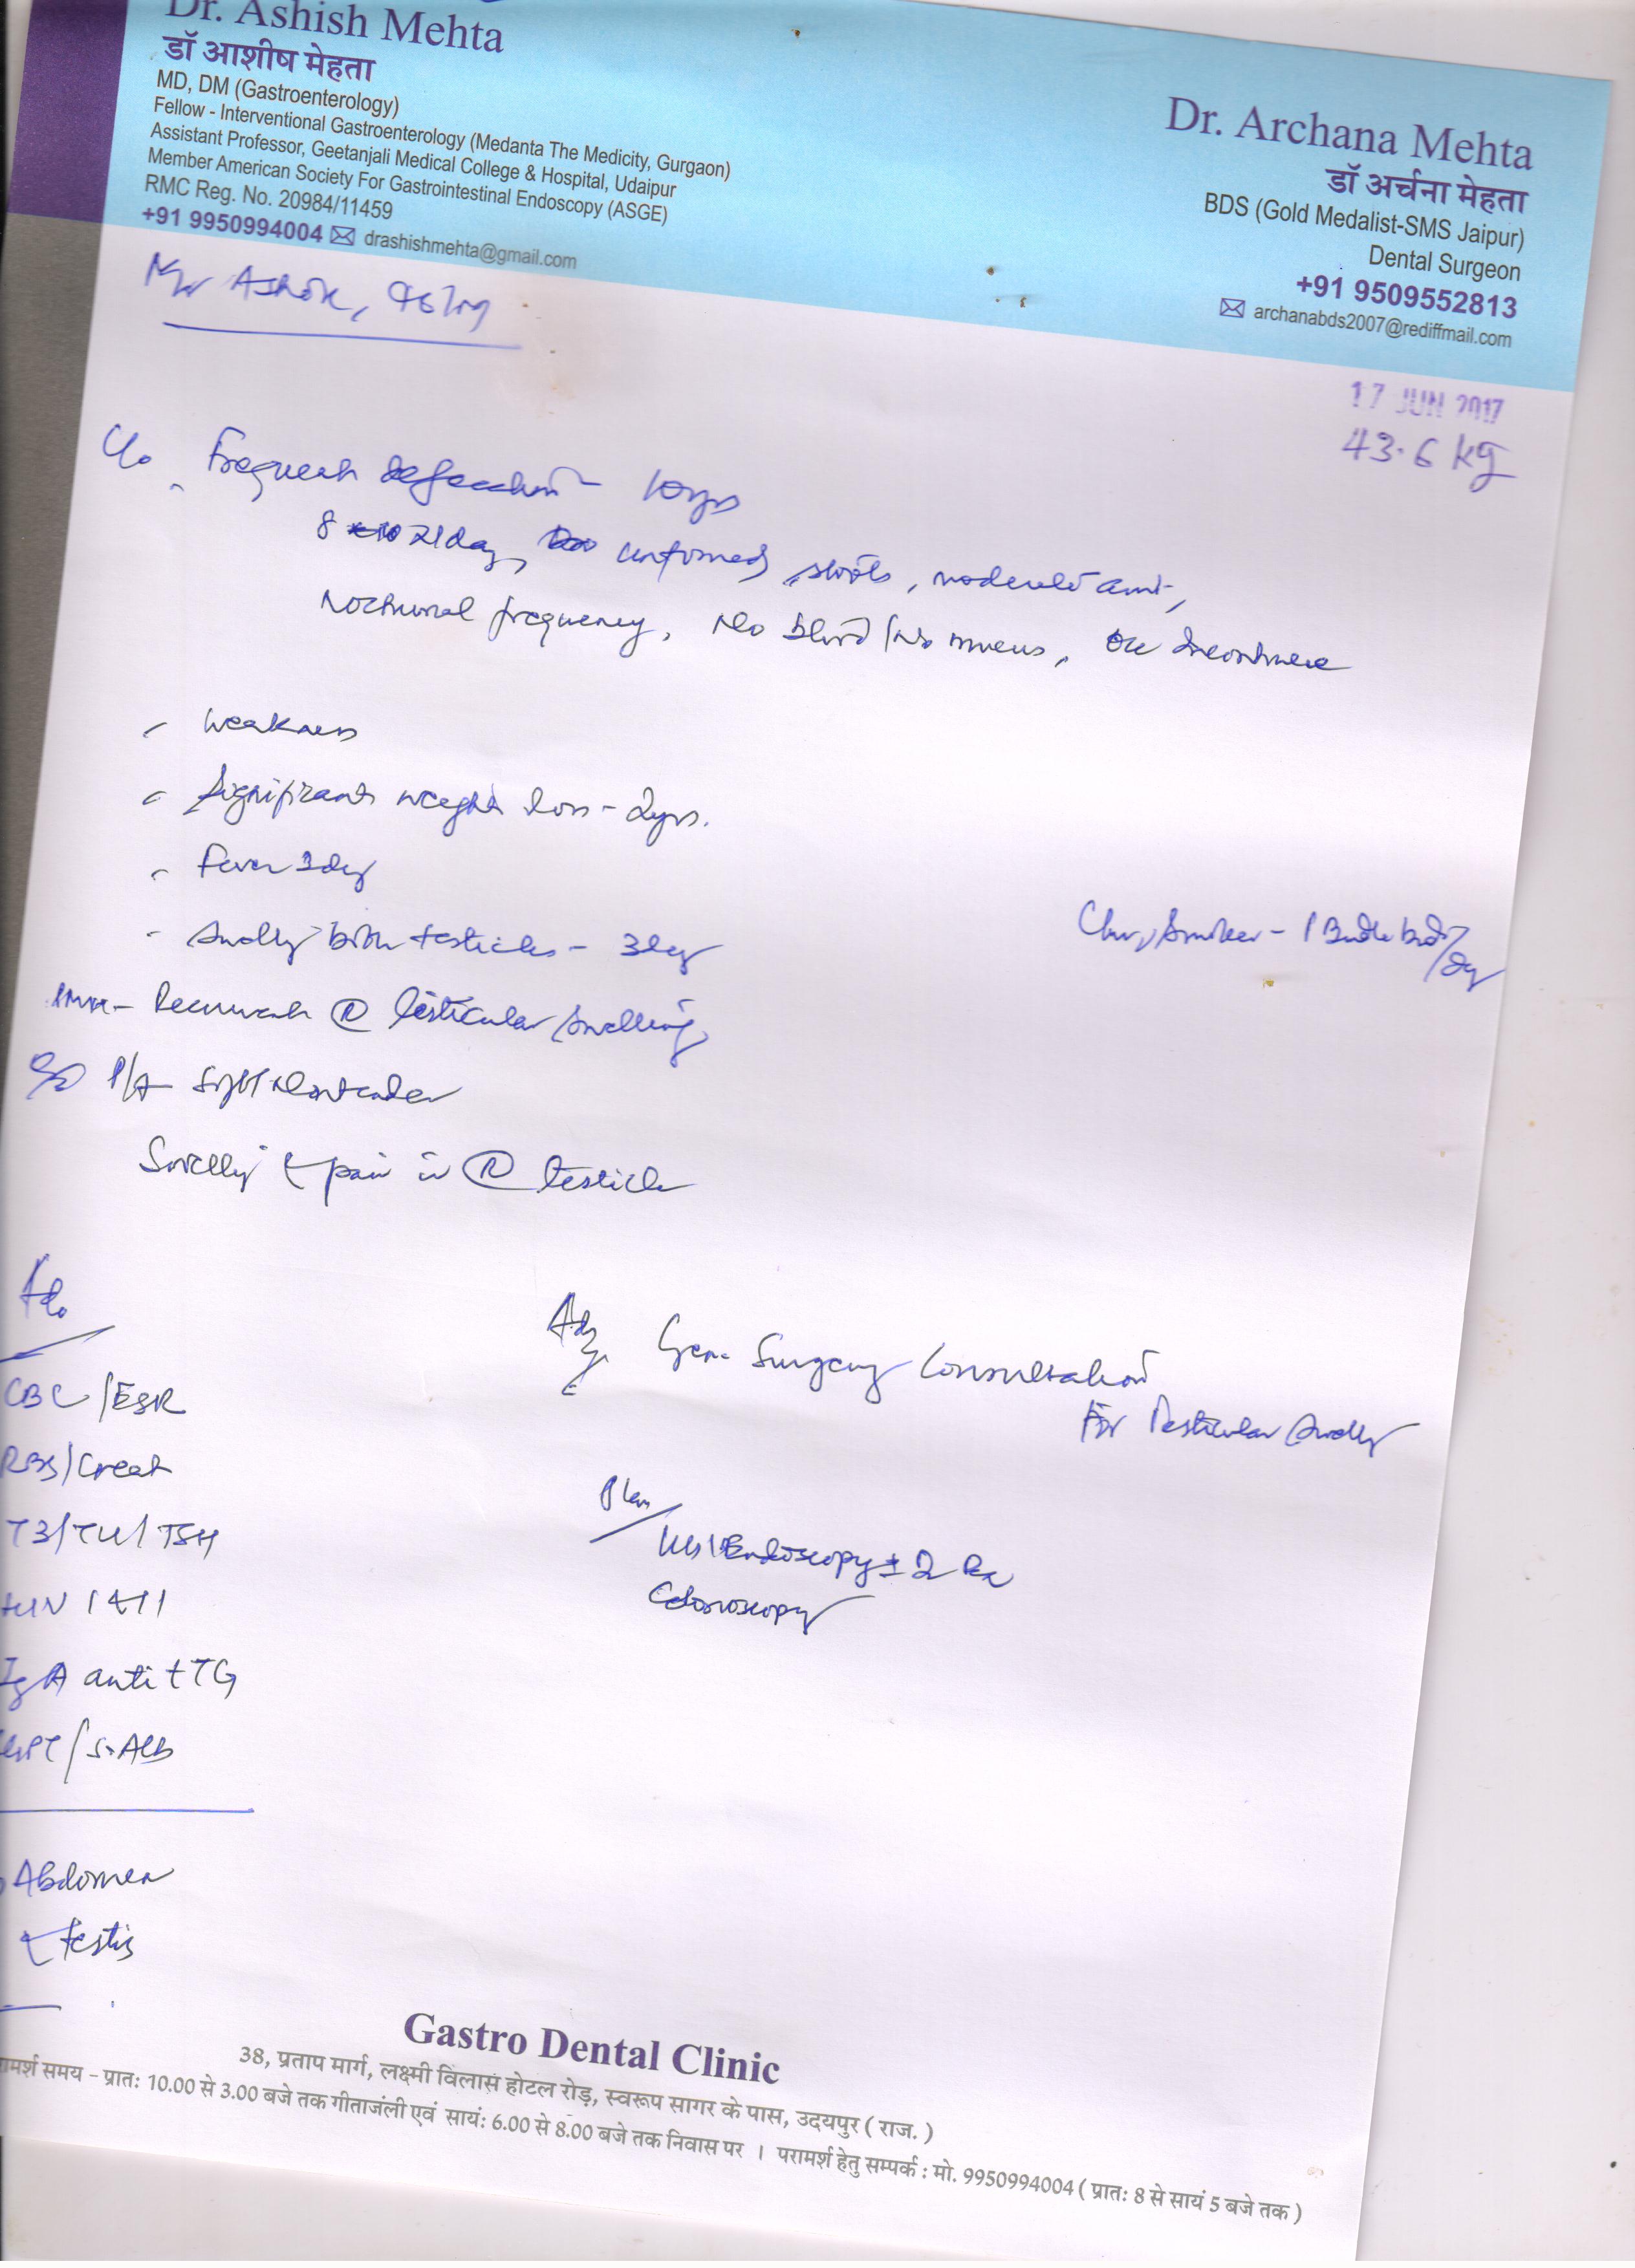 Dr. Ashish Mehta
डॉ आशीष मेहता
MD, DM (Gastroenterology)
Fellow - Interventional Gastroenterology (Medanta The Medicity, Gurgaon)
Assistant Professor, Geetanjali Medical College & Hospital, Udaipur
Member American Society For Gastrointestinal Endoscopy (ASGE)
RMC Reg. No. 20984/11459
+91 9950994004 drashishmehta@gmail.com
Dr. Archana Mehta
डॉ अर्चना मेहता
BDS (Gold Medalist-SMS Jaipur)
Dental Surgeon
+91 9509552813
archanabds2007@rediffmail.com
Mr Ashok,
17 JUN 2017
43.6 kg
C/o Frequent defecation - 10yrs
unformed stools, moderate amt,
Nocturnal frequency, No blood/No mucus,
- Weakness
- Significant weight loss - 2yrs.
- Fever 3day
- Swelly both testicles - 3day
Smoker - 1 Bundle bidi/day
Recurrent (R) testicular swelling
P/A - Soft Nontender
Swelly & pain in (R) testicle
Adv
CBC/ESR
RBS/Creat
T3/T4/TSH
HIV 1 & 11
IgA anti tTG
SGPT/S.Alb
Abdomen
& testis
Adv. Gen. Surgery Consultation
For Testicular Swelly
Plan
UGI Endoscopy ± D2 Bx
Colonoscopy
Gastro Dental Clinic
38, प्रताप मार्ग, लक्ष्मी विलास होटल रोड़, स्वरूप सागर के पास, उदयपुर ( राज. )
रामर्श समय - प्रात: 10.00 से 3.00 बजे तक गीताजंली एवं सायं: 6.00 से 8.00 बजे तक निवास पर । परामर्श हेतु सम्पर्क : मो. 9950994004 ( प्रात: 8 से सायं 5 बजे तक )